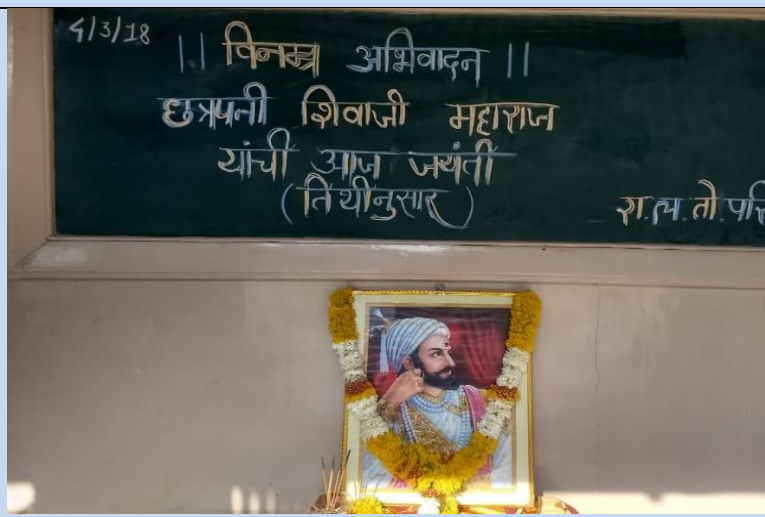 4/3/18
|| विनम्र अभिवादन ||
छत्रपती शिवाजी महाराज
यांची आज जयंती
(तिथीनुसार)
रा.त्य.तो.परि